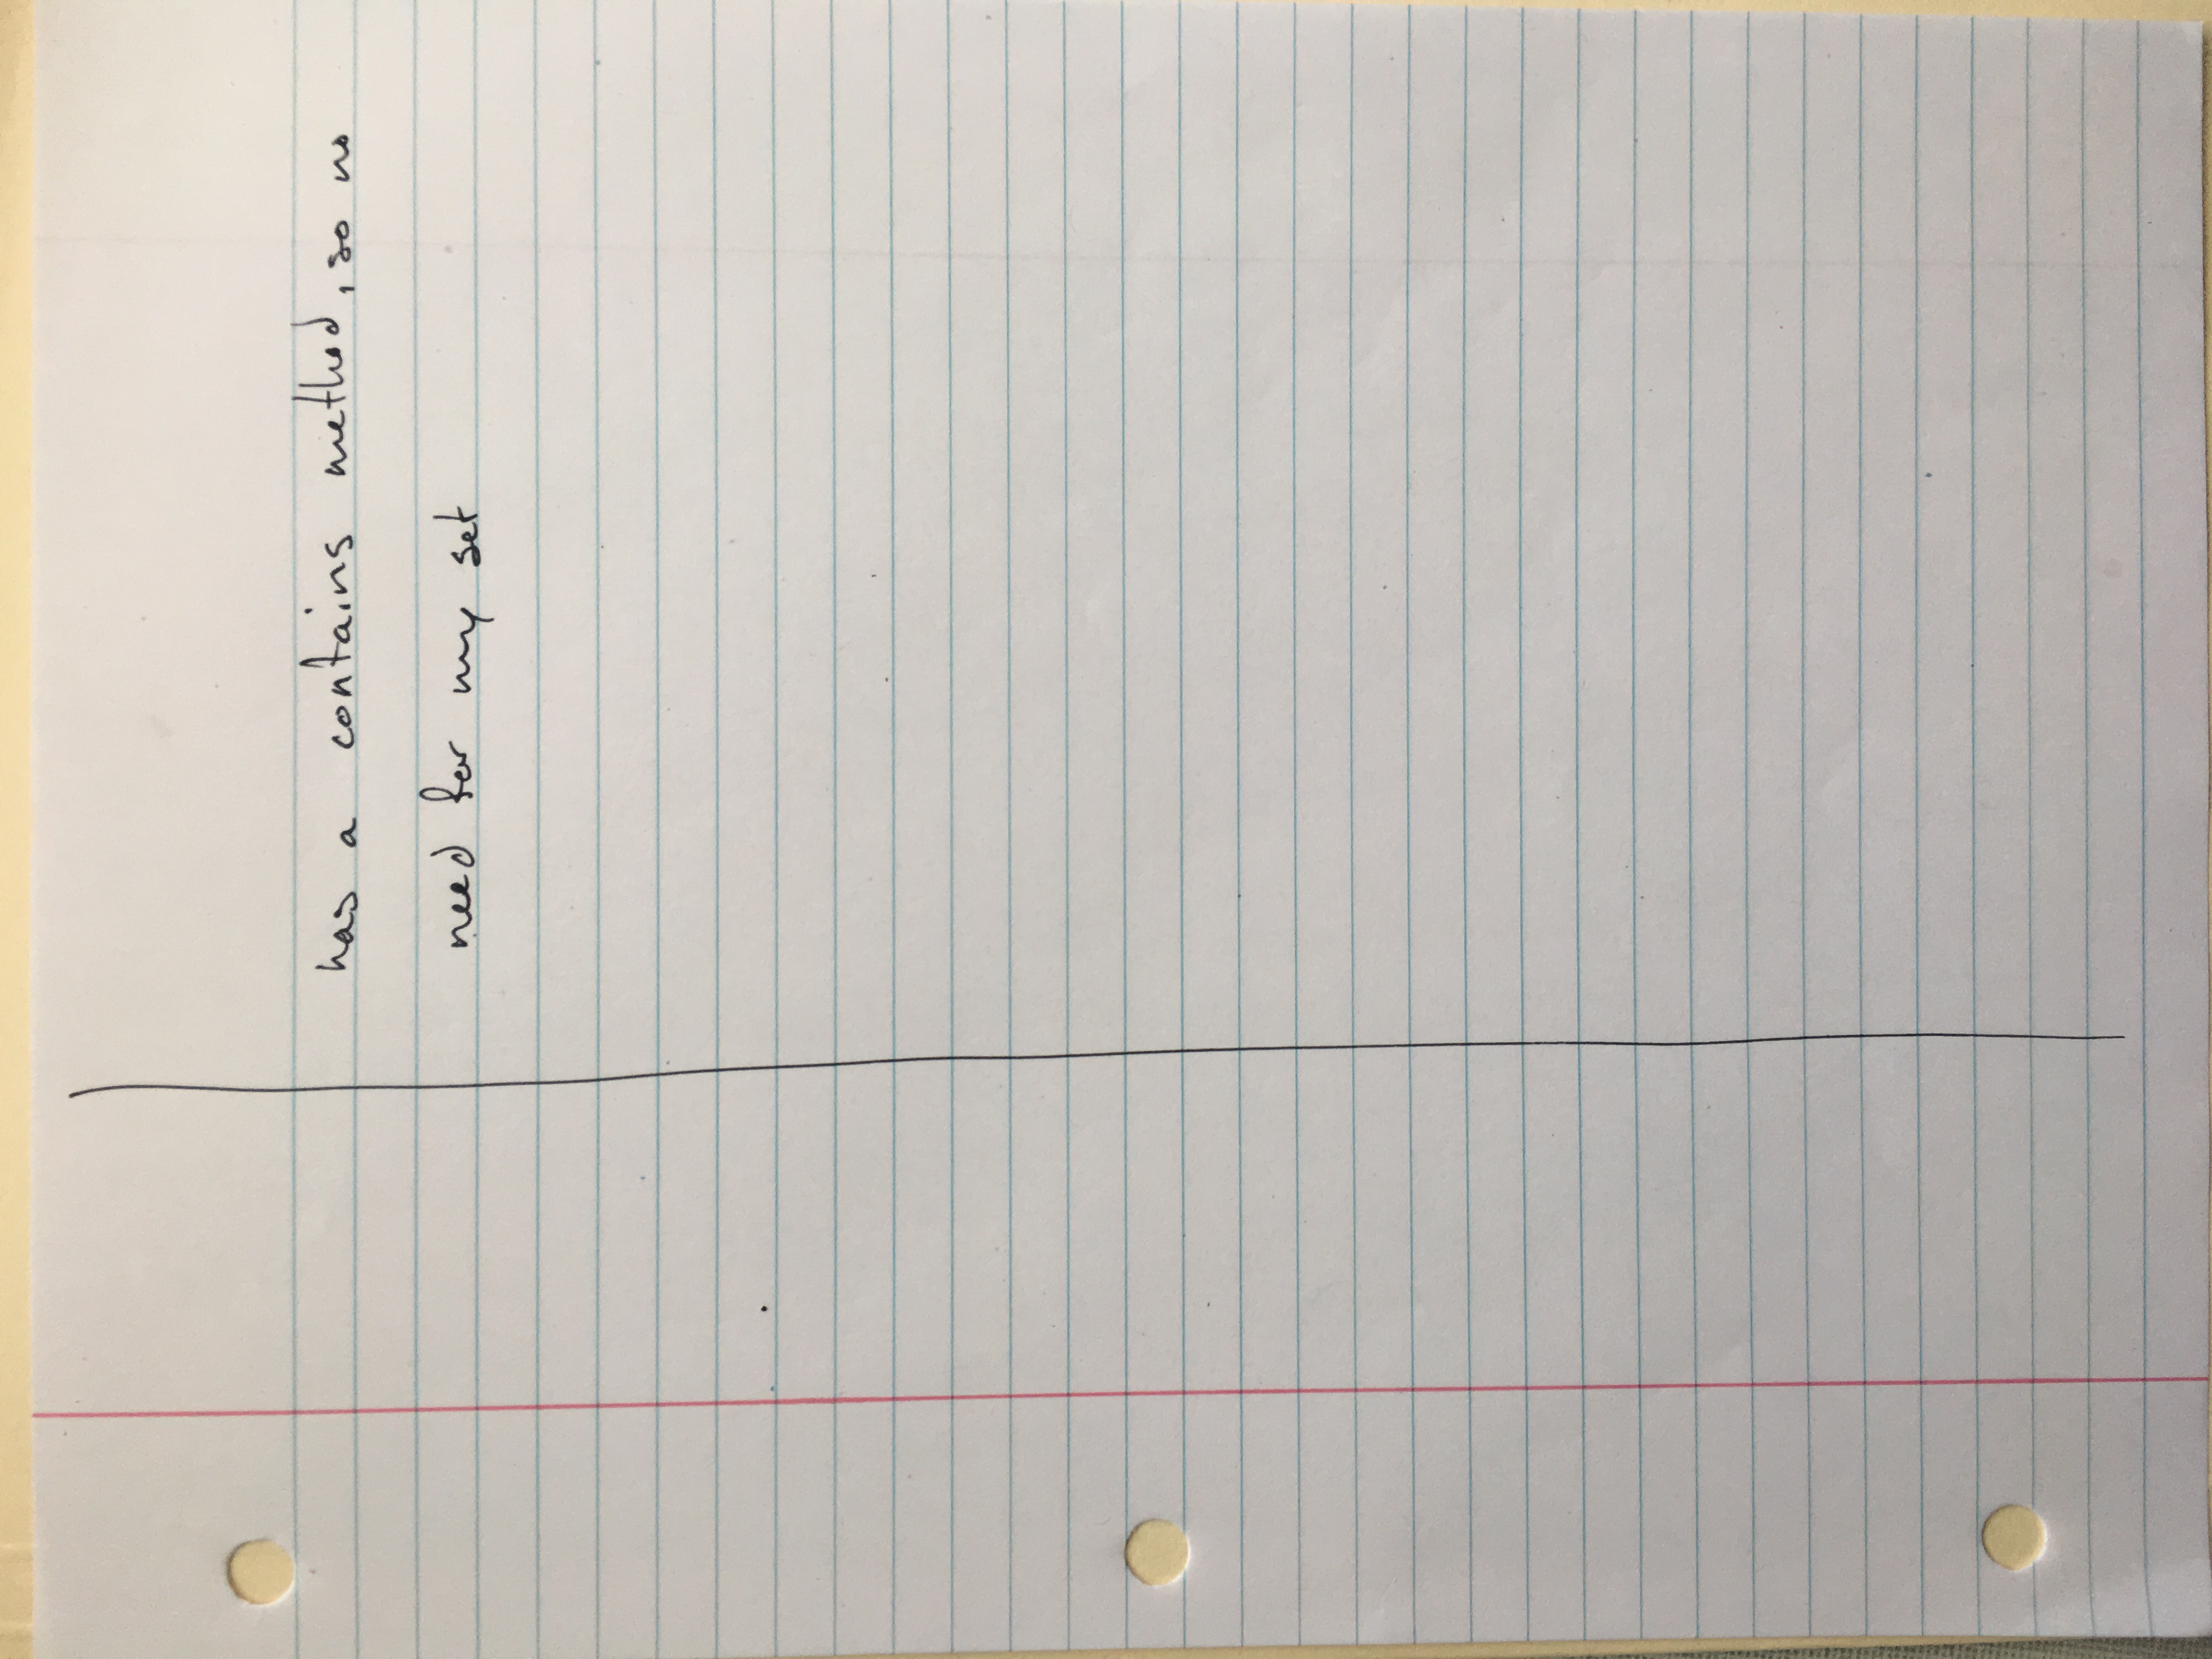 has a contains method, so no
need for my set